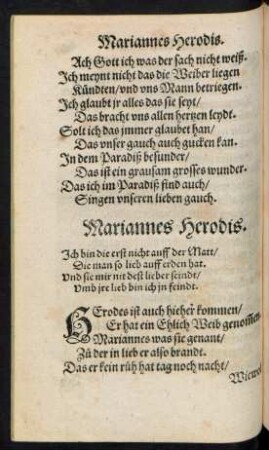 Mariannes Herodis.
Ach Gott ich was der sach nicht weiß.
Ich meynt nicht das die Weiber liegen
Kündten/ vnd vns Mann betriegen.
Ich glaubt jr alles das sie seyt/
Das bracht vns allen hertzen leydt.
Solt ich das jmmer glaubet han/
Das vnser gauch auch gucken kan.
In dem Paradiß besunder/
Das ist ein grausam grosses wunder.
Das ich im Paradiß find auch/
Singen vnseren lieben gauch.
Mariannes Herodis.
Ich bin die erst nicht auff der Matt/
Die man so lieb auff erden hat.
Vnd sie mir nit dest lieber seindt/
Vmb jre lieb bin ich jn feindt.
HErodes ist auch hieher kommen/
Er hat ein Ehlich Weib genommen.
Mariannes was sie genant/
Zů der in lieb er also brandt.
Das er kein růh hat tag noch nacht/
Wiewol